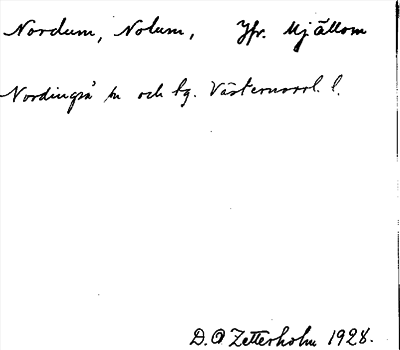 Nordum, Nolum, Jfr. Mjällom
Nordingrå sn och tg. Västernorrl. l.
D. O Zetterholm 1928.